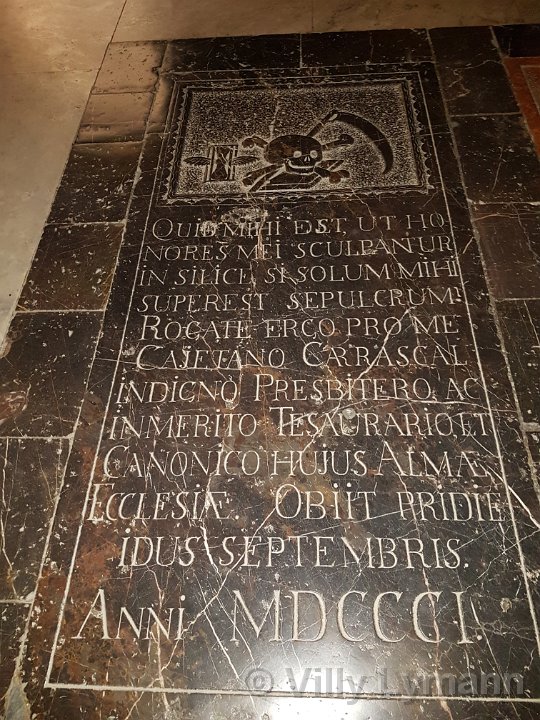 QUID MIHI EST, UT HO-
NORES MEI SCULPANTUR
IN SILICE SI SOLUM MIHI
SUPEREST SEPULCRUM?
ROGATE ERGO PRO ME
CAJETANO CARRASCAL
INDIGNO PRESBITERO, AC
INMERITO TESAURARIO, ET
CANONICO HUJUS ALMÆ
ECCLESIÆ. OBIIT PRIDIE
IDUS SEPTEMBRIS.
ANNI MDCCCI.
© Villy Lymann